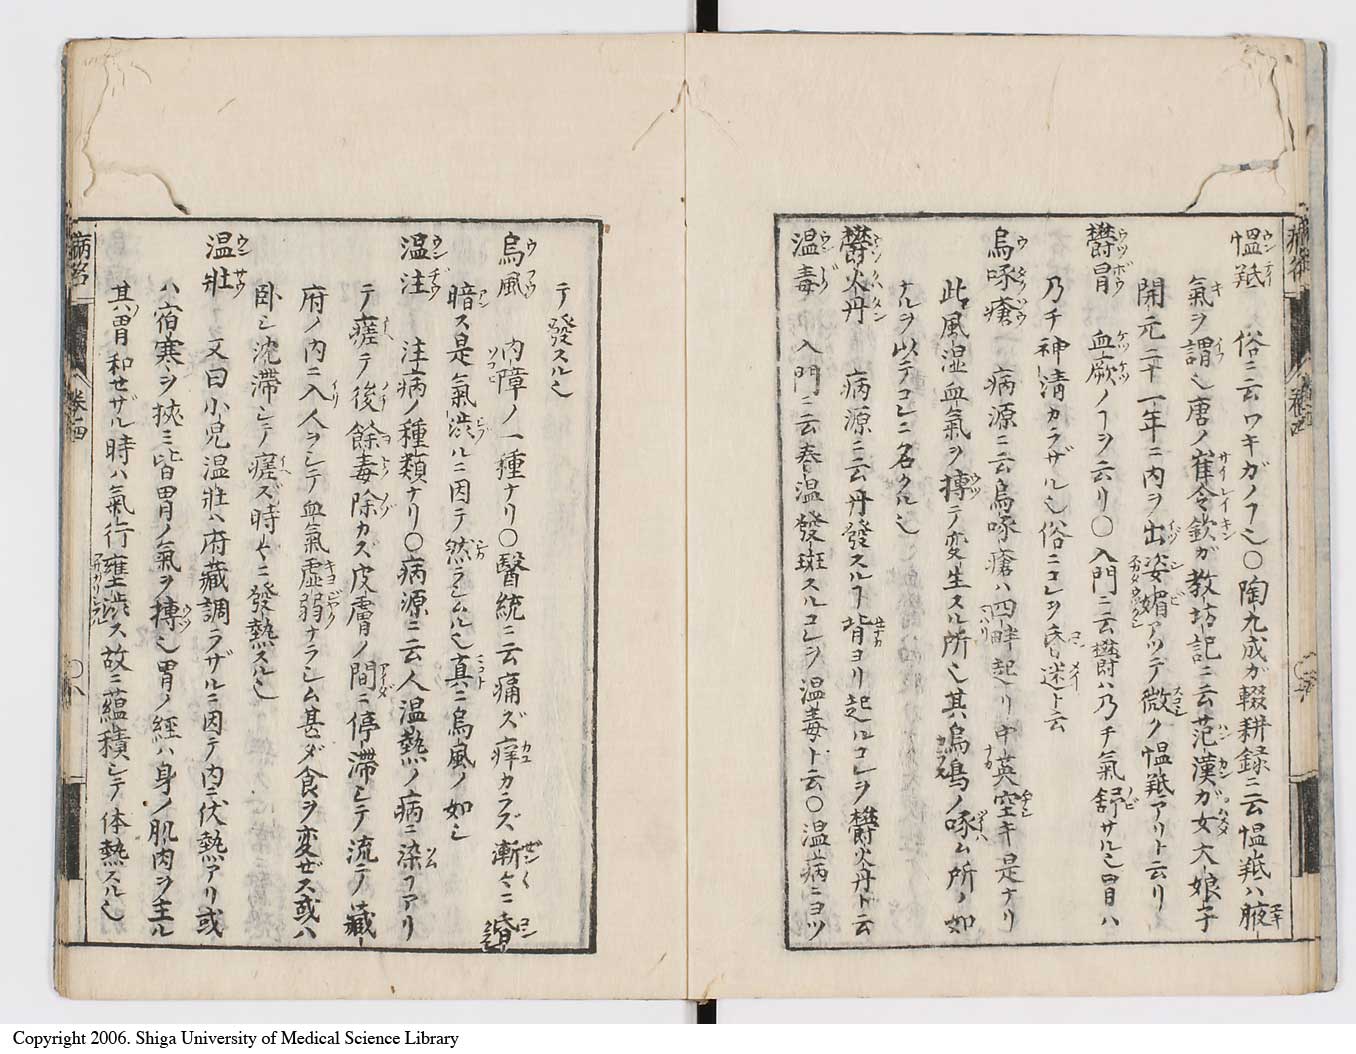 慍羝 俗ニ云ワキガノヿ也〇陶九成ガ輟耕録ニ云慍羝ハ腋
氣ヲ謂也唐ノ崔令欽ガ教坊記ニ云范漢ガ女大娘子
開元二十一年ニ内ヲ出姿媚アツテ微ク慍羝アリト云リ
欝冒 血厥ノヿヲ云リ〇入門ニ云欝ハ乃チ氣舒サル也冒ハ
乃チ神清カラザル也俗ニコレヲ昏迷ト云
烏啄瘡 病源ニ云烏啄瘡ハ四畔起リ中英空キ是ナリ
此風湿血氣ヲ搏テ変生スル所也其烏鳥ノ啄ム所ノ如
ナルヲ以テコレニ名クル也
欝火丹 病源ニ云丹發スルヿ背ヨリ起ルコレヲ欝火丹ト云
温毒 入門ニ云春温發斑スルコレヲ温毒ト云〇温病ニヨツ
テ發スル也
烏風 内障ノ一種ナリ〇醫統ニ云痛ズ痒カラズ漸々ニ昏
暗ス是氣渋ルニ因テ然ラシムル也真ニ烏風ノ如シ
温注 注病ノ種類ナリ〇病源ニ云人温熱ノ病ニ染ヿアリ
テ瘥テ後餘毒除カズ皮膚ノ間ニ停滞シテ流テ藏
府ノ内ニ入人ヲシテ血氣虚弱ナラシム甚ダ食ヲ変ゼス或ハ
卧シ沈滞シテ瘥ズ時々ニ發熱スル也
温壯 又曰小児温壯ハ府藏調ラザルニ因テ内ニ伏熱アリ或
ハ宿寒ヲ挾ミ皆胃ノ氣ヲ搏也胃ノ經ハ身ノ肌肉ヲ主ル
其胃和セザル時ハ氣行壅渋ス故ニ蘊積シテ体熱スル也
病名
巻四
Copyright 2006. Shiga University of Medical Science Library